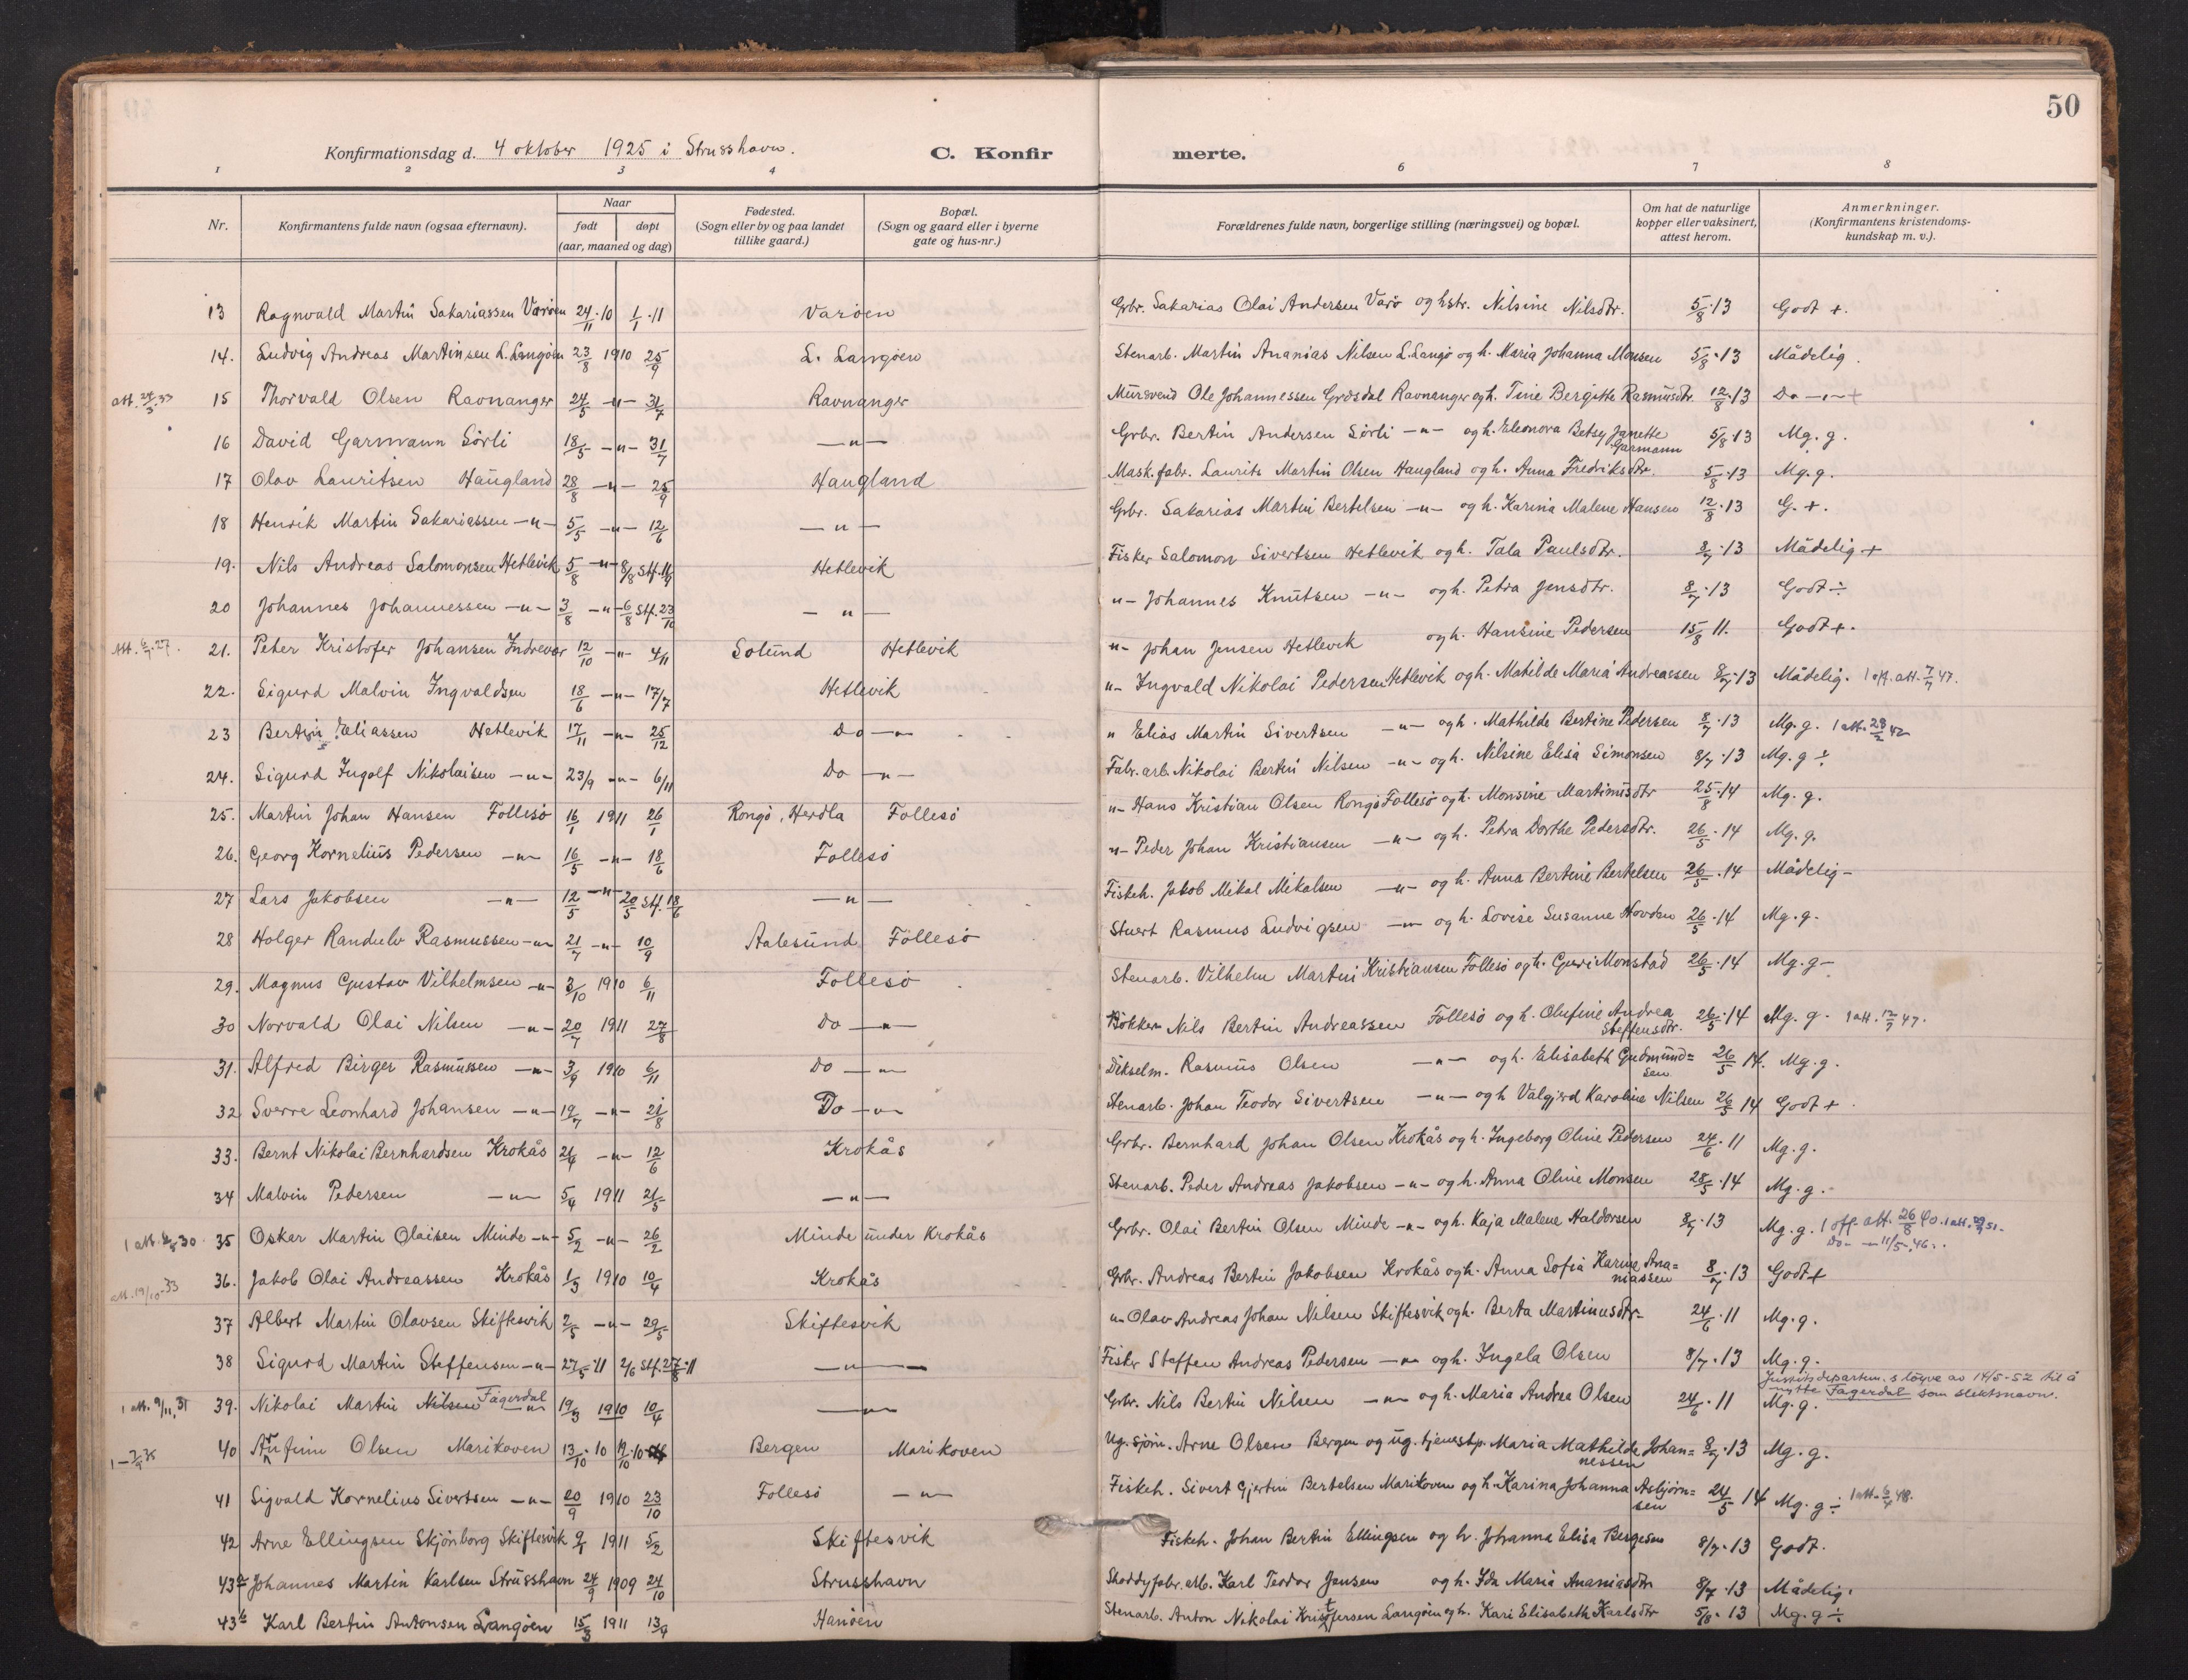 50
Konfirmationsdag d. 4 oktober 1925 i Strusshavn. C. Konfir merte.
1 2 3 4 6 7 8
Nr. Konfirmantens fulde navn (ogsaa efternavn). Naar født døpt (aar, maaned og dag) Fødested. (Sogn eller by og paa landet tillike gaard.) Bopæl. (Sogn og gaard eller i byerne gate og hus-nr.) Forældrenes fulde navn, borgerlige stilling (næringsvei) og bopæl. Om hat de naturlige kopper eller vaksinert, attest herom. Anmerkninger. (Konfirmantens kristendoms-kundskap m. v.).
13 Ragnvald Martin Sakariassen Varøen 24/11 10 1/1 11 Varøen Grbr. Sakarias Olai Andersen Varø og hstr. Nilsine Nilsdtr. 5/8 13 Godt +.
14. Ludvig Andreas Martinsen L. Langøen 23/8 1910 25/9 L. Langøen Stenarb. Martin Ananias Nilsen L. Langø og h. Maria Johanna Monsen 5/8 13 Mådelig.
att. 24/3 33 15 Thorvald Olsen Ravnanger 24/5 -"- 31/7 Ravnanger Mursvend Ole Johannessen Grøsdal Ravnanger og h. Tine Bergitte Rasmusdtr. 12/8 13 Do -"- +
16 David Garmann Sörli 18/5 -"- 31/7 -"- Grbr. Bertin Andersen Sörli -"- og h. Eleonora Betsy Janette Garmann 5/8 13 Mg. g.
17 Olav Lauritsen Haugland 28/8 -"- 25/9 Haugland Mask.fabr. Laurits Martin Olsen Haugland og h. Anna Fredriksdtr. 5/8 13 Mg. g.
18 Henrik Martin Sakariassen -"- 5/5 -"- 12/6 -"- Grbr. Sakarias Martin Bertelsen -"- og h. Karina Malene Hansen 12/8 13 G. +.
19. Nils Andreas Salomonsen Hetlevik 5/8 -"- 8/8 Stf. 11/9 Hetlevik Fisker Salomon Sivertsen Hetlevik og h. Tala Paulsdtr. 8/7 13 Mådelig +
20 Johannes Johannessen -"- 3/8 -"- 6/8 Stf. 23/10 -"- "- Johannes Knutsen -"- og h. Petra Jensdtr. 8/7 13 Godt ÷
Att. 6/7 27. 21. Peter Kristofer Johansen Indrevær 12/10 -"- 4/11 Solund Hetlevik "- Johan Jensen Hetlevik og h. Hansine Pedersen 15/8 11. Godt +.
22. Sigurd Malvin Ingvaldsen 18/6 -"- 17/7 Hetlevik "- Ingvald Nikolai Pedersen Hetlevik og h. Matilde Maria Andreassen 8/7 13 Mådelig. 1 off. att. 7/7 47.
23 Bertin Eliassen Hetlevik 17/11 -"- 25/12 Do -"- " Elias Martin Sivertsen -"- og h. Mathilde Bertine Pedersen 8/7 13 Mg. g. 1 att. 28/2 42
24. Sigurd Ingolf Nikolaisen -"- 23/9 -"- 6/11 Do -"- Fabr. arb. Nikolai Bertin Nilsen -"- og h. Nilsine Elisa Simonsen 8/7 13 Mg. g ÷
25. Martin Johan Hansen Follesö 16/1 1911 26/1 Rongö, Herdla Follesö "- Hans Kristian Olsen Rongö Follesö og h. Monsine Martinusdtr 25/8 14 Mg. g.
26. Georg Kornelius Pedersen -"- 16/5 -"- 18/6 Follesö "- Peder Johan Kristiansen -"- og h. Petra Dorthe Pedersdtr. 26/5 14 Mg. g.
27 Lars Jakobsen -"- 12/5 -"- 20/5 Stf. 18/6 -"- Fiskeh. Jakob Mikal Mikalsen -"- og h. Anna Bertine Bertelsen 26/5 14 Mådelig -
28 Holger Randulv Rasmussen -"- 21/7 -"- 10/9 Aalesund Follesö Stuert Rasmus Ludvigsen -"- og h. Lovise Susanne Hovden 26/5 14 Mg. g.
29. Magnus Gustav Vilhelmsen -"- 3/10 1910 6/11 Follesö Stenarb. Vilhelm Martin Kristiansen Follesö og h. Guri Monstad 26/5 14 Mg. g -
30 Norvald Olai Nilsen -"- 20/7 1911 27/8 Do -"- Bökker Nils Bertin Andreassen Follesö og h. Olufine Andrea Steffensdtr. 26/5 14 Mg. g. 1 att. 12/9 47.
31. Alfred Birger Rasmussen -"- 3/9 1910 6/11 Do -"- Dikselm. Rasmus Olsen -"- og h. Elisabeth Gudmund=sen 26/5 14. Mg. g.
32 Sverre Leonhard Johansen -"- 19/7 -"- 21/8 Do -"- Stenarb. Johan Teodor Sivertsen -"- og h Valgjerd Karoline Nilsen 26/5 14 Godt +
33. Bernt Nikolai Bernhardsen Krokås 21/4 -"- 12/6 Krokås Grbr. Bernhard Johan Olsen Krokås og h. Ingeborg Oline Pedersen 24/6 11 Mg. g.
34 Malvin Pedersen -"- 5/4 1911 21/5 -"- Stenarb. Peder Andreas Jakobsen -"- og h. Anna Oline Monsen 28/5 14 Mg. g.
1 att. 30 35 Oskar Martin Olaisen Minde -"- 5/2 -"- 26/2 Minde under Krokås Grbr. Olai Bertin Olsen Minde -"- og h. Kaja Malene Haldorsen 8/7 13 Mg. g. 1 off. att. 26/8 40. 1 att. 51.
Do- -"- 11/5. 46.
att. 19/10 33 36. Jakob Olai Andreassen Krokås 1/3 1910 10/4 Krokås Grbr. Andreas Bertin Jakobsen Krokås og h. Anna Sofia Karine Ana=niassen 8/7 13 Godt +
37 Albert Martin Olavsen Skiftesvik 2/5 -"- 29/5 Skiftesvik "- Olav Andreas Johan Nilsen Skiftesvik og h. Berta Martinusdtr- 24/6 11 Mg. g.
38 Sigurd Martin Steffensen -"- 27/5 11 2/6 Stf. 27/8 11 -"- Fisker Steffen Andreas Pedersen -"- og h. Ingela Olsen 8/7 13 Mg. g.
Justitsdepartem. s löyve av 14/5-52 til å nytte Fagerdal som slektsnavn.
1 att. 9/11, 31 39. Nikolai Martin Nilsen Fagerdal -"- 19/3 1910 10/4 -"- Grbr. Nils Bertin Nilsen -"- og h. Maria Andrea Olsen 24/6 11 Mg. g.
40 Arnfinn Olsen Marikoven 13/10 10 19/10 10 Bergen Marikoven Ug. sjöm. Arne Olsen Bergen og ug. tjenestp. Maria Mathilde Johan=nessen 8/7 13 Mg. g.
41 Sigvald Kornelius Sivertsen -"- 20/9 1910 23/10 Follesö -"- Fiskeh. Sivert Gjertin Bertelsen Marikoven og h. Karina Johanna Asbjörn=sen 24/5 14 Mg. g ÷ 1 att. 48.
42 Arne Ellingsen Skjönborg Skiftesvik 9/1 1911 5/2 Skiftesvik Fiskeh. Johan Bertin Ellingsen og h. Johanna Elisa Bergesen 8/7 13 Godt.
43a Johannes Martin Karlsen Strusshavn 24/9 1909 24/10 Strusshavn Shoddyfabr. arb. Karl Teodor Jensen og h. Ida Maria Ananiasdtr 8/7 13 Mådelig.
43b Karl Bertin Antonsen Langöen 15/3 1911 13/9 Hanöen Stenarb. Anton Nikolai Kristfersen Langöen og h. Kari Elisabeth Karlsdtr 5/8 13 Mg. g ÷